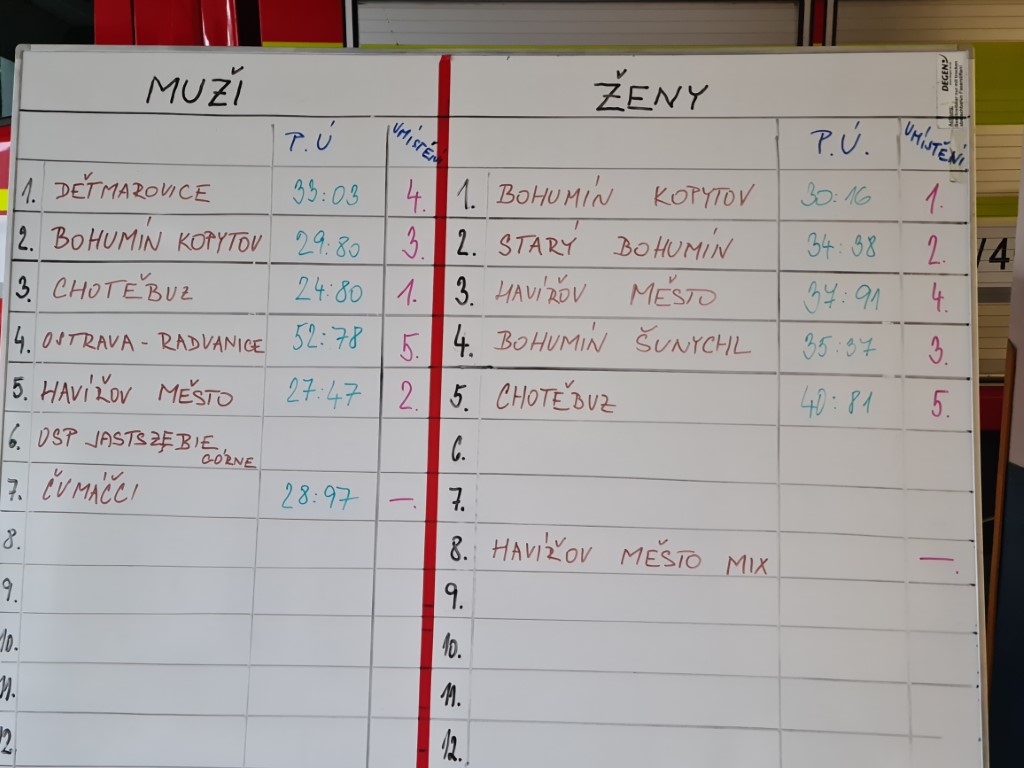 MUŽI ŽENY
P.Ú UMÍSTĚNÍ P.Ú. UMÍSTĚNÍ
1. DĚTMAROVICE 33:03 4. 1. BOHUMÍN KOPYTOV 30:16 1.
2. BOHUMÍN KOPYTOV 29:80 3. 2. STARÝ BOHUMÍN 34:38 2.
3. CHOTĚBUZ 24:80 1. 3. HAVÍŘOV MĚSTO 37:91 4.
4. OSTRAVA - RADVANICE 52:78 5. 4. BOHUMÍN ŠUNYCHL 35:37 3.
5. HAVÍŘOV MĚSTO 27:47 2. 5. CHOTĚBUZ 40:81 5.
6. OSP JASTSZĘBIE GÓRNE 6.
7. ČUMÁČCI 28:97 —. 7.
8. 8. HAVÍŘOV MĚSTO MIX —.
9. 9.
10. 10.
11. 11.
12 12.
DEGEN
/4